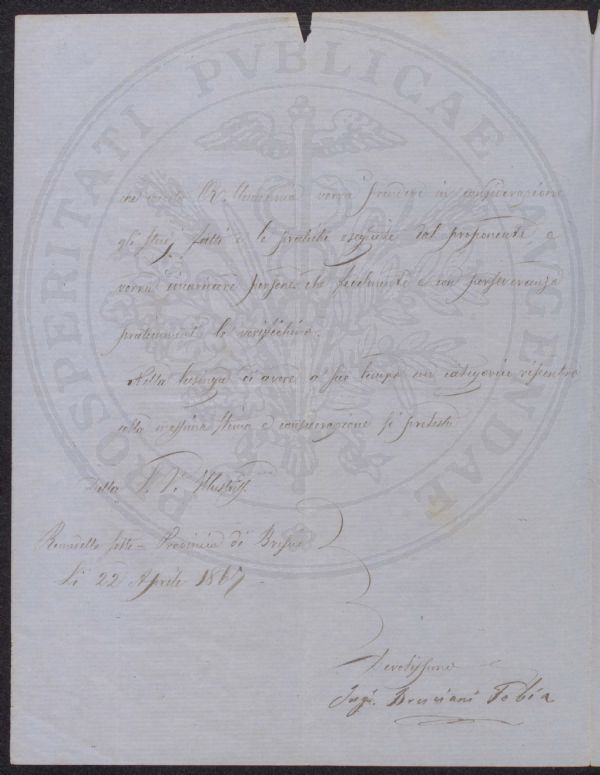 PROSPERITATI PVBLICAE AVGENDAE
vorrà prendere in considerazione
gli studj fatti e le pratiche eseguite dal proponente e
vorrà incaricare persone che fedelmente e con perseveranza
praticamente le verifichino.
Nella lusinga di avere a suo tempo un categorico riscontro
colla massima stima e considerazione si protesta
Della S. V. Illustriss.
Provincia di
Li 22 Aprile 1867
Devotissimo
Ing. Bresciani Tobia